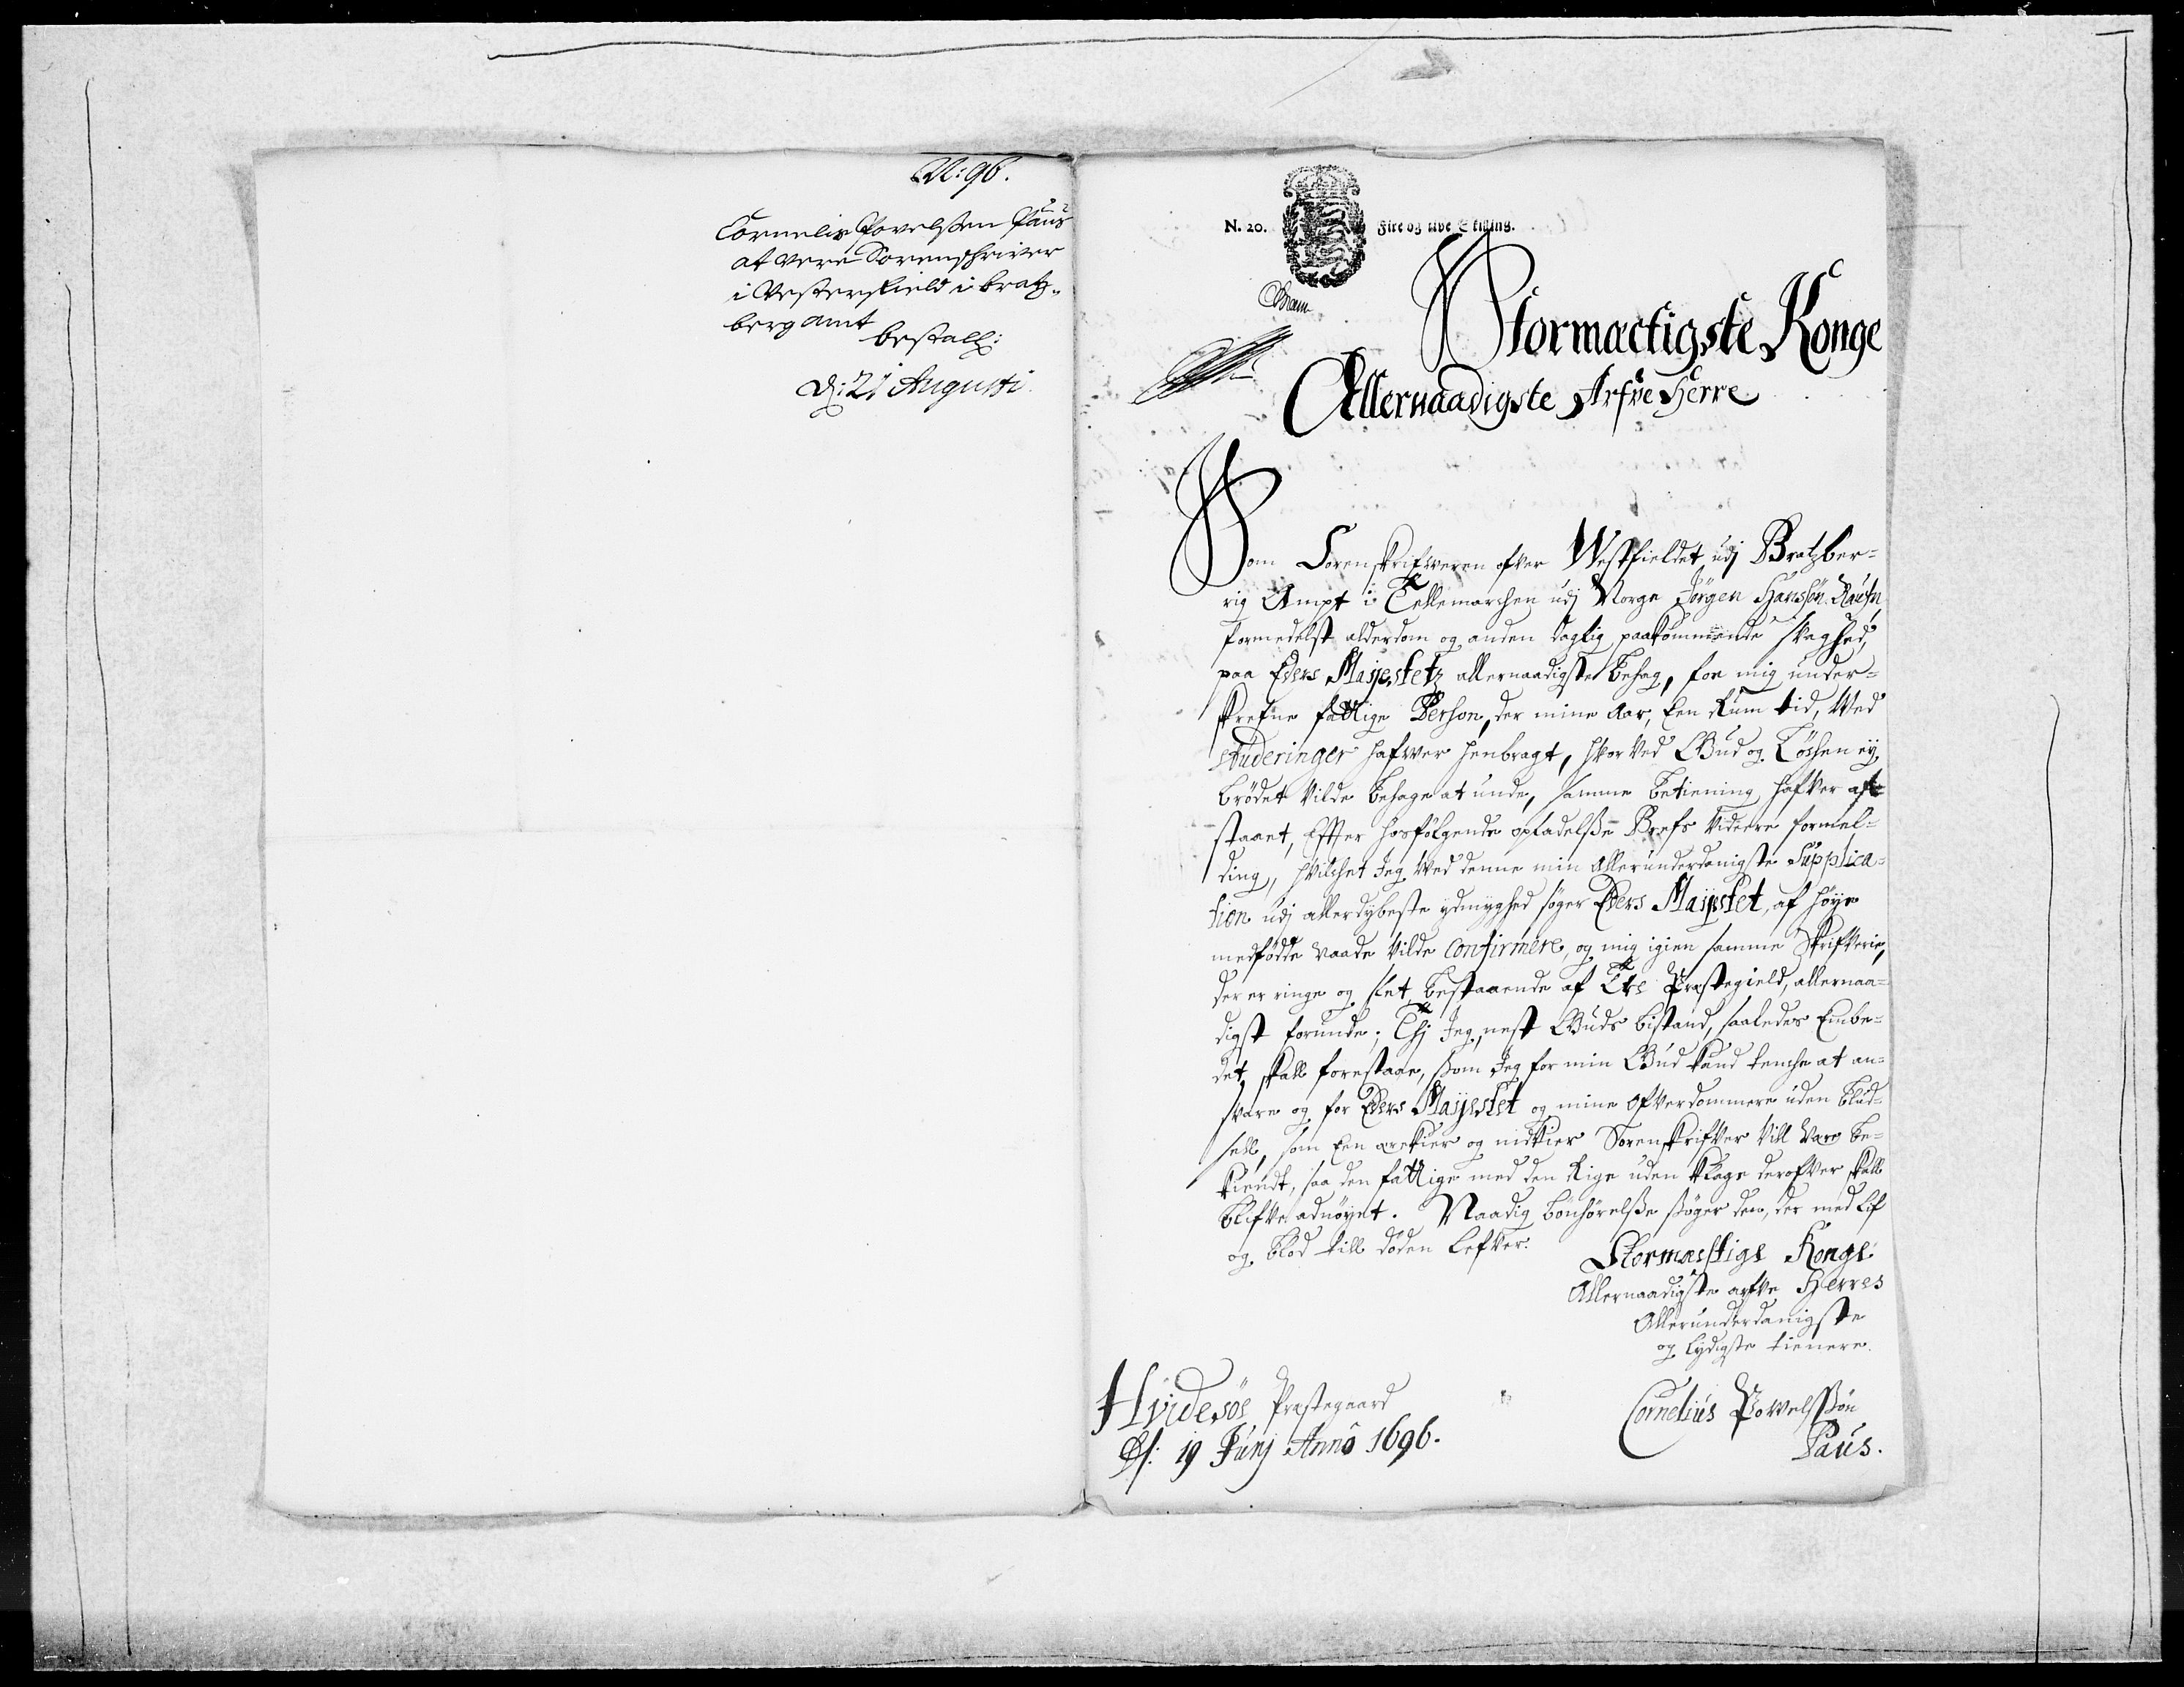 N: 96.
Cornelis Povelsen Paus
at være Sorenschriver
i Vesterfield i bratz-
berg amt
bestall:
d: 21 Augusti
N. 20. Fire og tive Skilling.
Stormæctigste Konge
Allernaadigste Arfve Herre
Som Sorenskrifveren ofver Westfieldet udj Bratzber-
rig Ampt i Tellemarchen udj Norge Jörgen Hanssön
formedelst alderdom og anden daglig paakommende svaghed,
paa Eders Mayestetz allernaadigste behag, for mig under-
skrefne fattige Person, der mine Aar, Een Rum tid, Ved
studeringer hafver henbragt, hvor Ved Gud og Løchen ey
brödet Vilde behage at unde, samme betiening hafver af
staaet, Effter hosfølgende opladelsse Brefs Videre formel-
ding, hvilchet Jeg Ved denne min Allerunderdanigste Supplica-
tion udj allerdybeste ydmyghed søger Eders Mayestet, af høye
medfødde naade Vilde confirmere, og mig igien samme Skrifverie,
der er ringe og slet bestaaende af Præstegield, allernaa-
digst forunde; Thj Jeg, nest Guds bistand, saaledes Embe-
det skall forestaae, som Jeg for min Gud kand tenche at an-
svare og for Eders Mayestet og mine Ofverdommere uden blud-
sell, som Een ærekier og nidkier Sorenskrifver Vill Være be-
kiendt, saa den fattige med den Rige uden klage derofver skall
blifve adnøyet. Naadig bønhørelsse ssøger den, der med Lif
og blod till döden Lefver.
Stormæctige Konge
Allernaadigste arfve Herres
Allerunderdanigste
og Lydigste tienere.
Hvidesöe Præstegaard
D: 19 Junj Anno 1696.
Cornelius Powelssön
Paus.